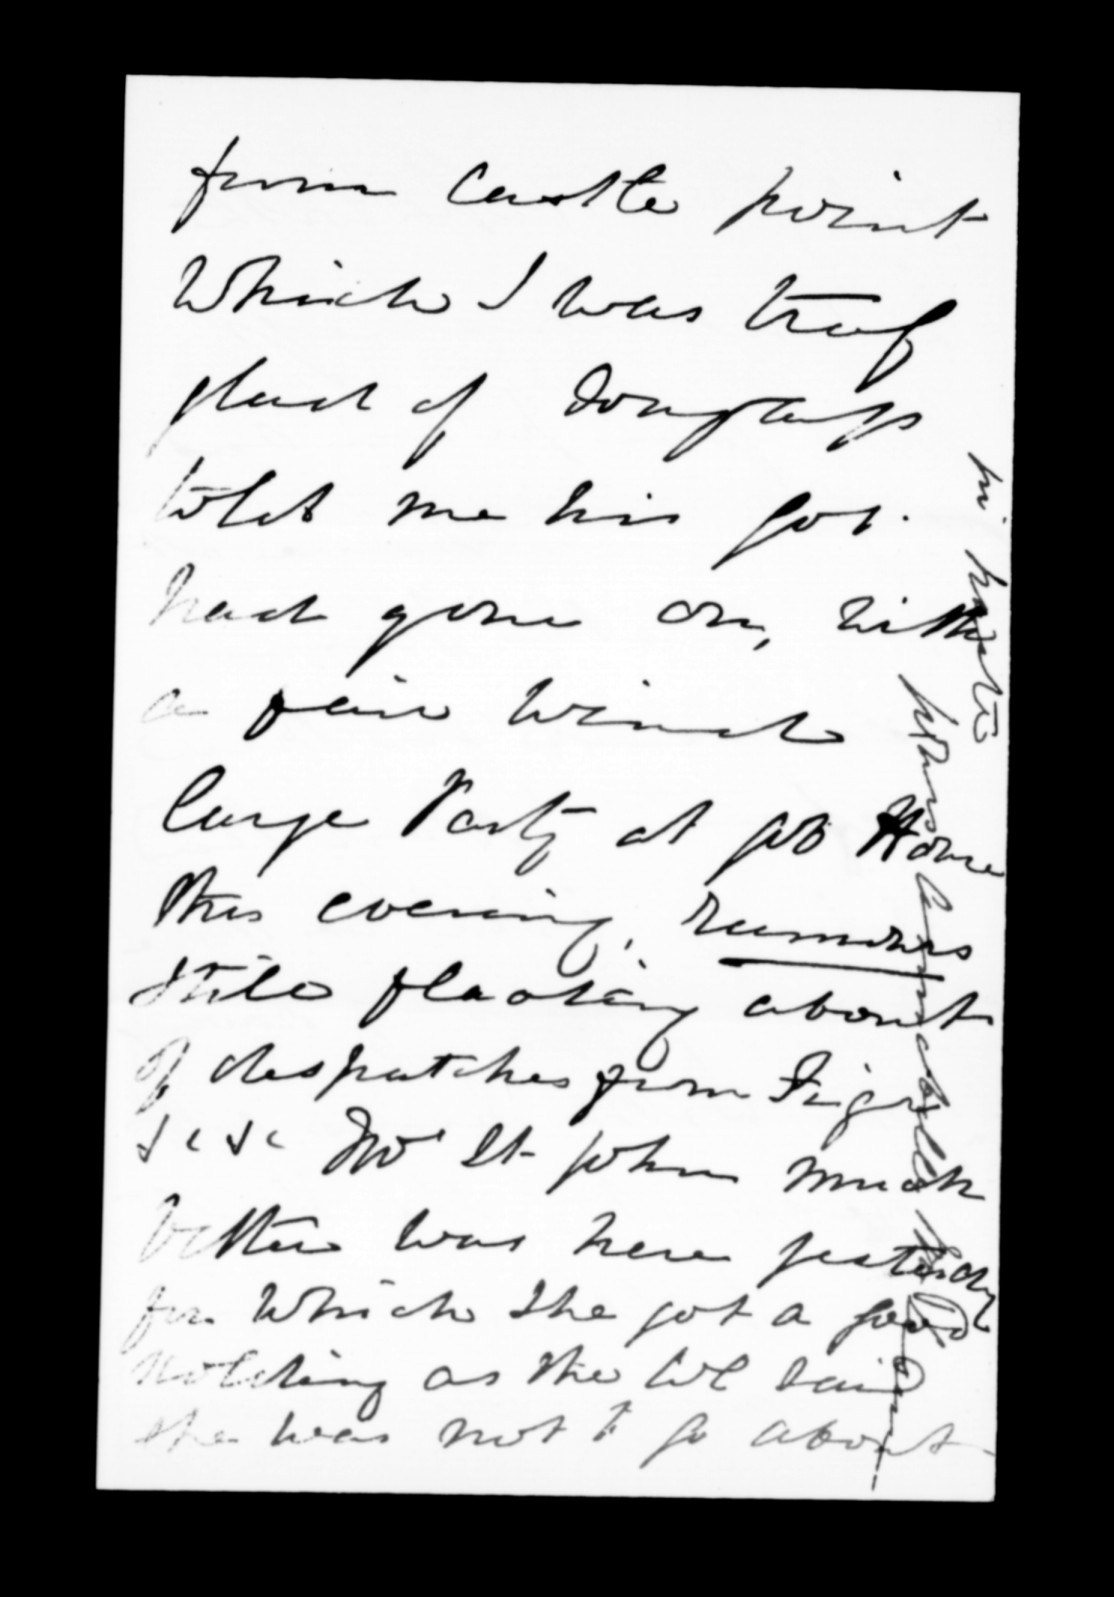 from Castle point
Which I was truly
glad of Douglass
told me his gov.
had gone on, with
a fair wind
large Party at gov House
this evening, rumours
still floating about
of despatches from Fiji
&c &c Mrs St John much
better was here yesterday
for Which She got a good
scolding as the Col said
she was not to go about
in haste
yours